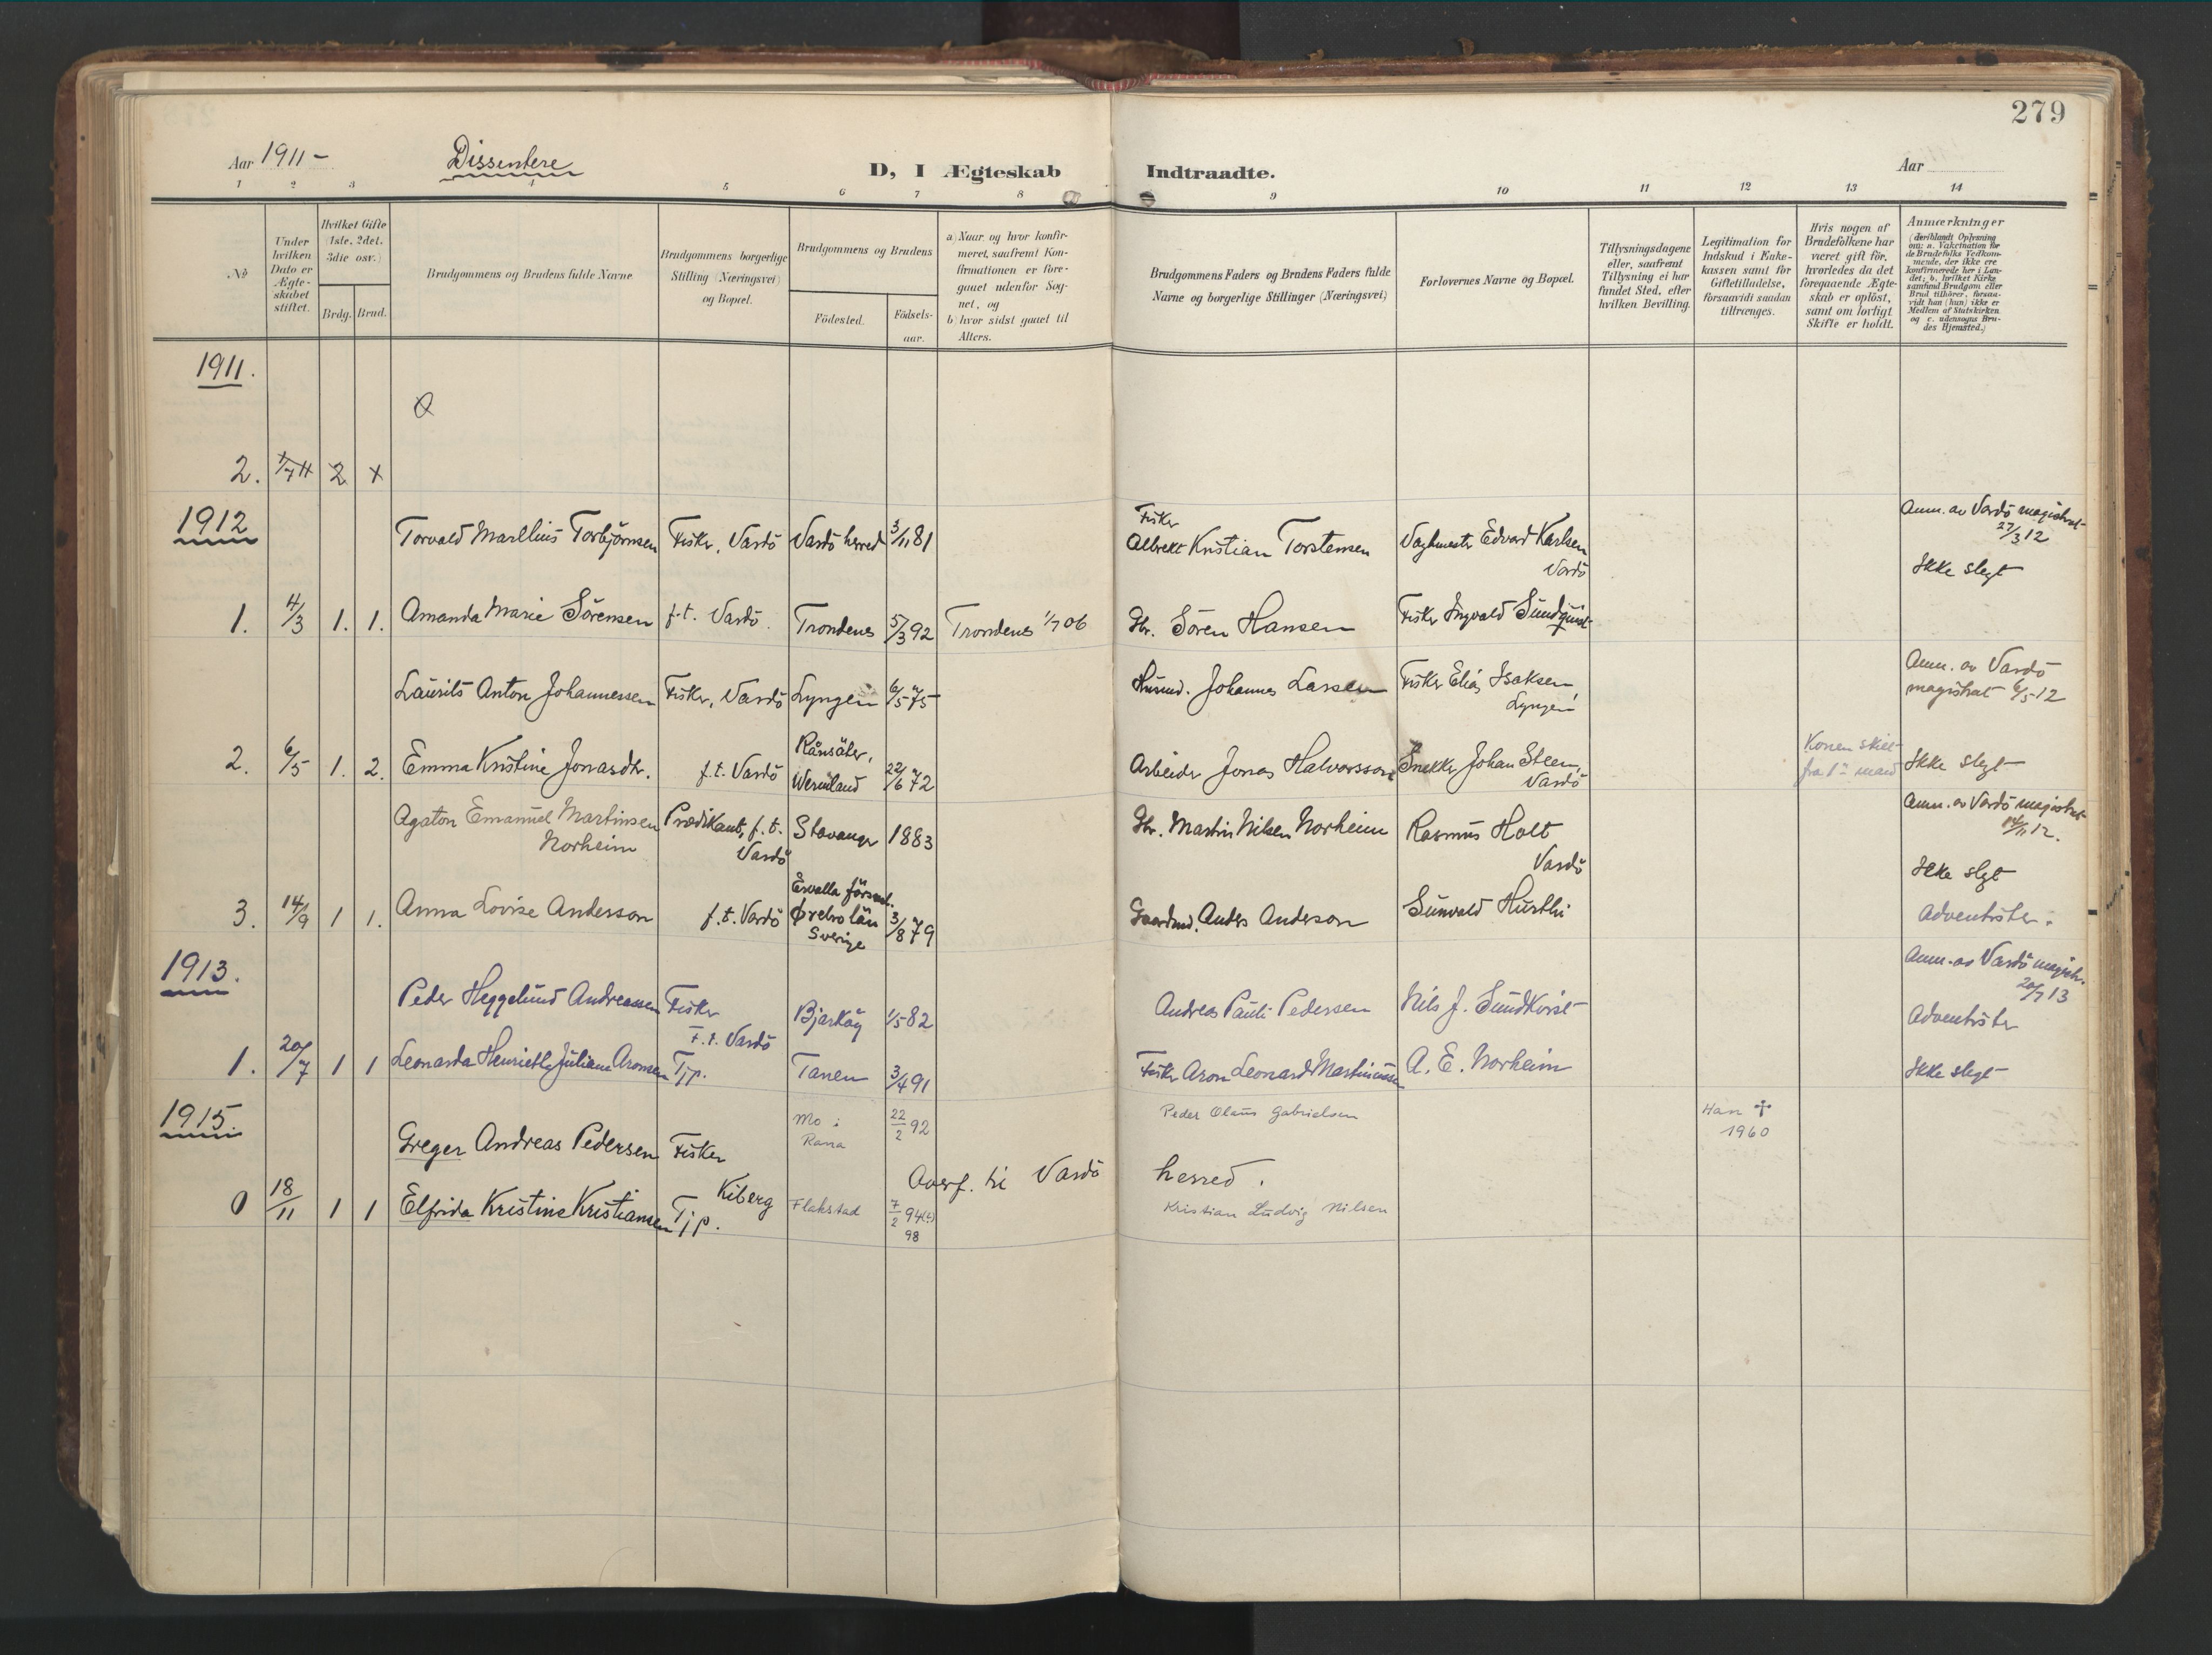 279
Aar 1911 - Dissentere D, I Ægteskab Indtraadte. Aar
1 2 3 4 5 6 7 8 9 10 11 12 13 14
No
Under hvilken Dato er Ægteskabet stiftet.
Hvilket Gifte (1ste, 2det, 3die osv.)
Brdg. Brud.
Brudgommens og Brudens fulde Navne.
Brudgommens borgerlige Stilling (Næringsvei) og Bopæl.
Brudgommens og Brudens
Födested. Födsels-aar.
a) Naar og hvor konfir-
meret, saafremt Kon-
firmationen er fore-
gaaet udenfor Sog-
net, og
b) hvor sidst gaaet til
Alters.
Brudgommens Faders og Brudens Faders fulde
Navne og borgerlige Stillinger (Næringsvei)
Forlovernes Navne og Bopæl.
Tillysningsdagene
eller, saafremt
Tillysning ei har
fundet Sted, efter
hvilken Bevilling.
Legitimation for
Indskud i Enke-
kassen samt for
Giftetilladelse,
forsaavidt saadan
tiltrænges.
Hvis nogen af
Brudefolkene har
været gift før,
hvorledes da det
foregaaende Ægte-
skab er oplöst,
samt om lovligt
Skifte er holdt.
Anmærkninger
(deriblandt Oplysning
om: a. Vakcination for
de Brudefolks Vedkom-
mende, der ikke ere
konfirmerede her i Lan-
det; b. hvilket Kirke-
samfund Brudgom eller
Brud tilhörer, forsaa-
vidt han (hun) ikke er
Medlem af Statskirken
og c. udensogns Bru-
des Hjemsted.)
1911.
2. 2 x
1912
Torvald Marllius Torbjörnsen Fisker, Vardö Vardö herred 3/11 81 Fisker Albrekt Kristian Torstensen Vagtmester Edvard Karlsen Vardö Anm. av Vardö magistrat 27/3 12
Ikke slegt
1. 4/3 1. 1. Amanda Marie Sörensen f.t. Vardö. Trondenes 5/3 92 Trondenes 1/7 06 Gbr. Sören Hansen Fisker Ingvald Sundquist
Laurits Anton Johannessen Fisker, Vardö Lyngen 6/5 75 Husmd. Johannes Larsen Fisker Elias Isaksen Lyngen Anm. av Vardö magistrat 6/5 12
2. 6/5 1. 2. Emma Kristine Jonasdtr. f.t. Vardö Ränsäter, Wermland 22/6 72 Arbeider Jonas Halvorsson Snekker Johan Steen, Vardö Konen skilt fra 1ste mand Ikke slegt
Agaton Emanuel Martinsen Norheim Prædikant, f.t. Vardö Stavanger 1883 Gbr. Martin Nilsen Norheim Rasmus Holt Vardö Anm. av Vardö magistrat 12.
Ikke slegt
3. 14/9 1 1. Anna Lovise Andersson f.t. Vardö Ervalla församl. Örebro län Sverige 3/8 79 Gaardmd. Anders Anderson Sunvald Hurthi Adventister.
1913.
Peder Heggelund Andreassen Fisker F.t. Vardö Bjarköy 1/5 82 Andreas Pauli Pedersen Nils J. Sundkvist Anm. av Vardö magistr. 20/7 13
Adventister
1. 20/7 1 1 Leonarda Henriette Juliane Aronsen Tjp. Tanen 3/4 91 Fisker Aron Leonard Martinussen A. E. Norheim Ikke slegt
1915.
Greger Andreas Pedersen Fisker Mo i Rana 22/2 92 Peder Olaus Gabrielsen Han ✝ 1960
Overf. til Vardö herred.
0 18/11 1 1 Elfrida Kristine Kristiansen Tjp. Kiberg Flakstad 7/2 94(?) 98 Kristian Ludvig Nilsen